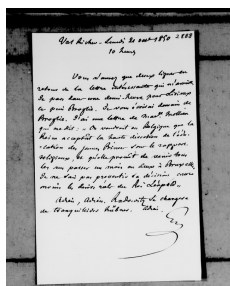 Val Richer. Lundi 20 août 1850 2888
10 heures
Vous n'aurez que deux lignes en
retour de la lettre intéressante qui m'arrive.
Je pars dans une demi-heure pour Lisieux
et puis Broglie. Je vous écrirai demain de
Broglie. J'ai une lettre de Mad.
qui me dit : On voudrait en Belgique que la
Reine acceptât la haute direction de l'édu-
cation des jeunes Princes sous le rapport
religieux, et qu'elle promît de venir tous
les ans passer un mois ou deux à Bruxelles.
Je ne sais pas si sa décision
mais le désir vient du Roi Léopold.
Adieu, Adieu. Radowitz se chargera
de tranquilliser Adieu.